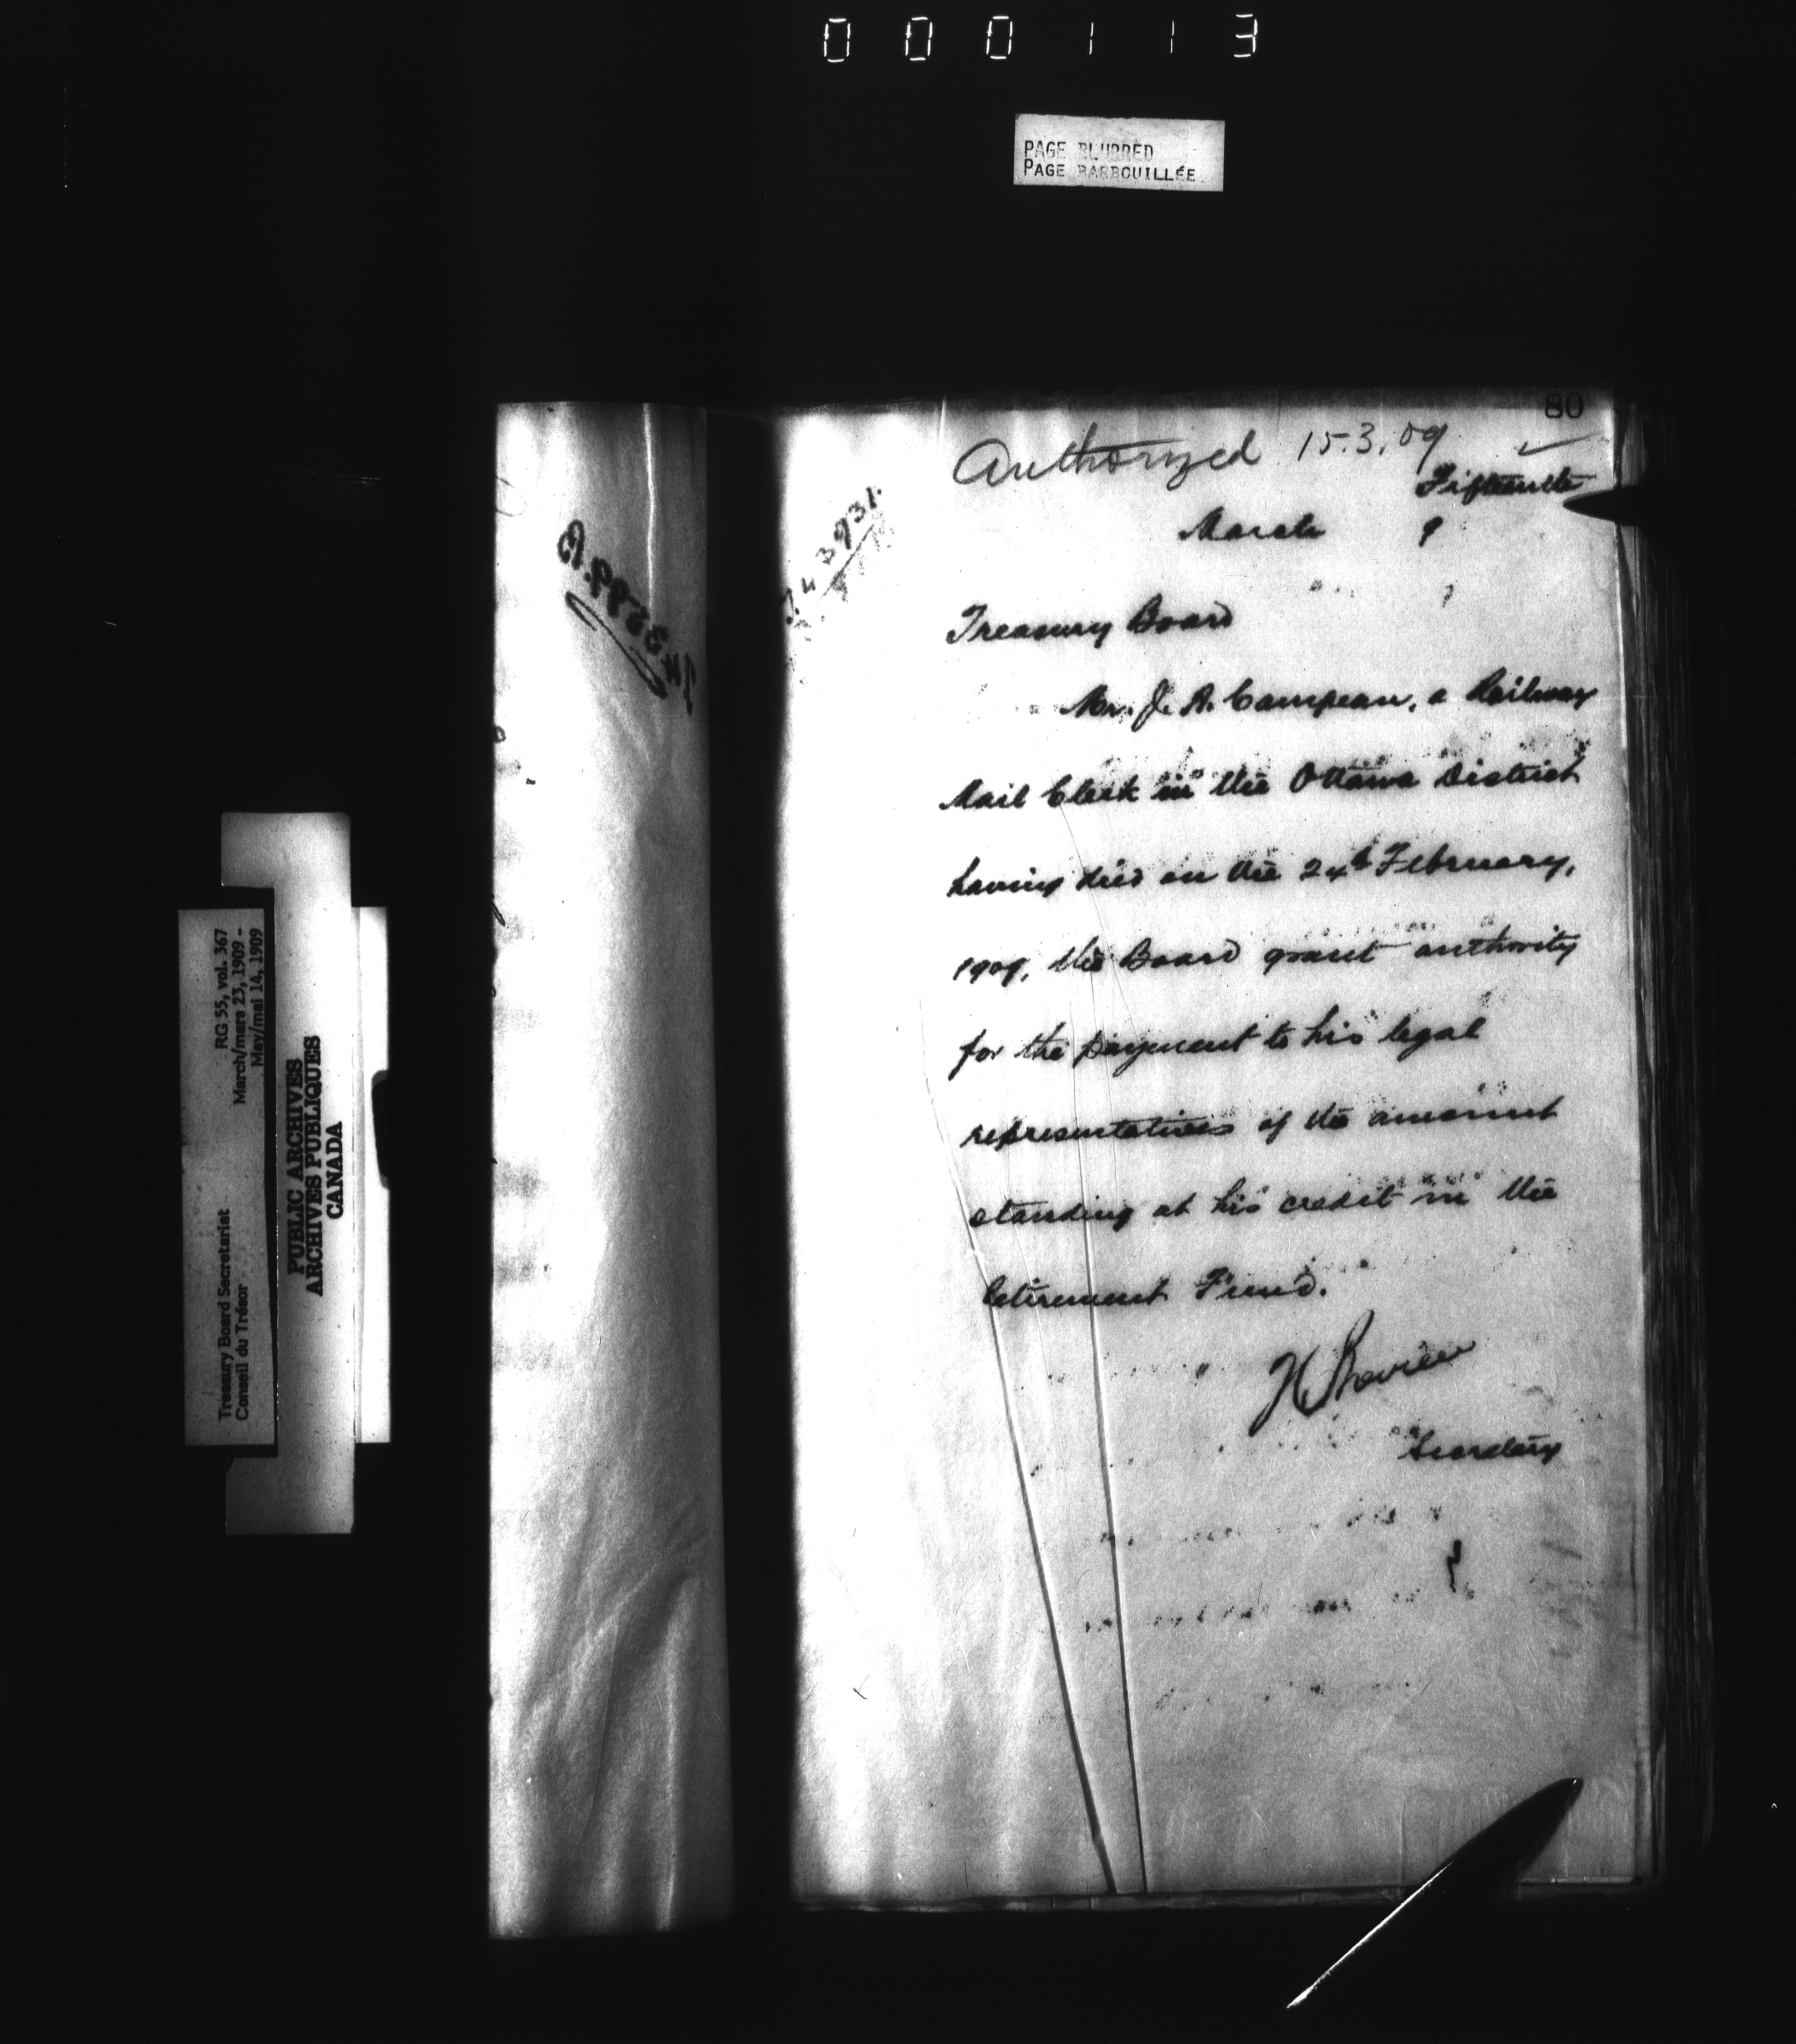 000113
PAGE BLURRED
PAGE BARBOUILLÉE
80
Authorized 15.3.09
Fifteenth
March 9
Treasury Board
Mr. J. A. Campeau, a Railway
Mail Clerk in the Ottawa District
having died on the 24th February,
1909, the Board grant authority
for the payment to his legal
representatives of the amount
standing at his credit in the
Retirement Fund.
Secretary
Treasury Board Secretariat RG 55, vol. 367
Conseil du Trésor March/mars 23, 1909 -
May/mai 14, 1909
PUBLIC ARCHIVES
ARCHIVES PUBLIQUES
CANADA